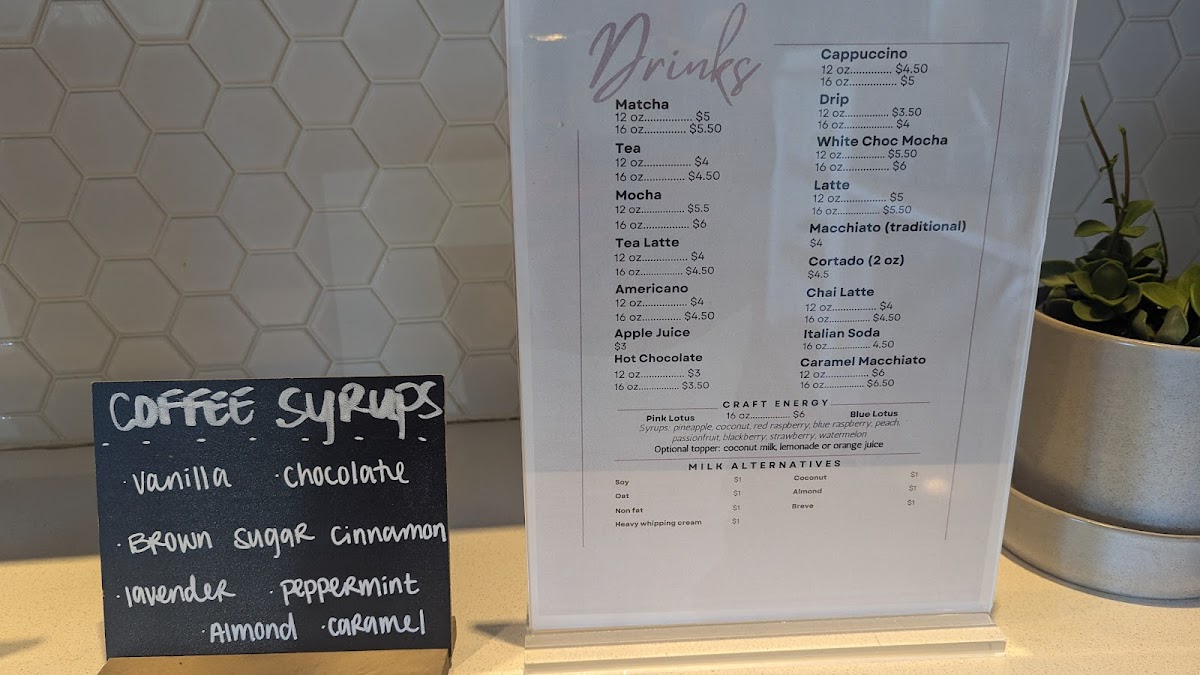 COFFEE SYRUPS
· vanilla · chocolate
· BROWN SUGAR cinnamon
· lavender · peppermint
· Almond · caramel
Drinks
Matcha
12 oz................. $5
16 oz............... $5.50
Tea
12 oz................. $4
16 oz............... $4.50
Mocha
12 oz............... $5.5
16 oz................. $6
Tea Latte
12 oz................. $4
16 oz............... $4.50
Americano
12 oz................. $4
16 oz............... $4.50
Apple Juice
$3
Hot Chocolate
12 oz................. $3
16 oz............... $3.50
Cappuccino
12 oz............... $4.50
16 oz................. $5
Drip
12 oz............... $3.50
16 oz................. $4
White Choc Mocha
12 oz............... $5.50
16 oz................. $6
Latte
12 oz................. $5
16 oz............... $5.50
Macchiato (traditional)
$4
Cortado (2 oz)
$4.5
Chai Latte
12 oz................. $4
16 oz............... $4.50
Italian Soda
16 oz............... 4.50
Caramel Macchiato
12 oz................. $6
16 oz............... $6.50
CRAFT ENERGY
Pink Lotus 16 oz............... $6 Blue Lotus
Syrups: pineapple, coconut, red raspberry, blue raspberry, peach,
passionfruit, blackberry, strawberry, watermelon
Optional topper: coconut milk, lemonade or orange juice
MILK ALTERNATIVES
Soy $1
Oat $1
Non fat $1
Heavy whipping cream $1
Coconut $1
Almond $1
Breve $1